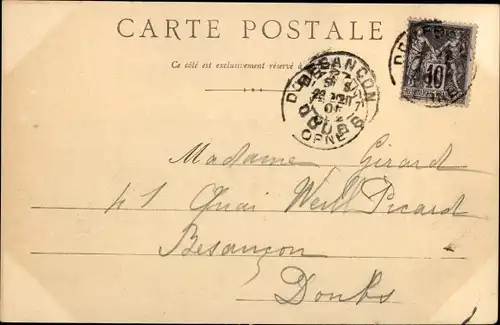 CARTE POSTALE
Ce côté est exclusivement réservé à
BESANÇON
DOUBS
10
Madame Girard
41 Quai Weill Picard
Besançon
Doubs